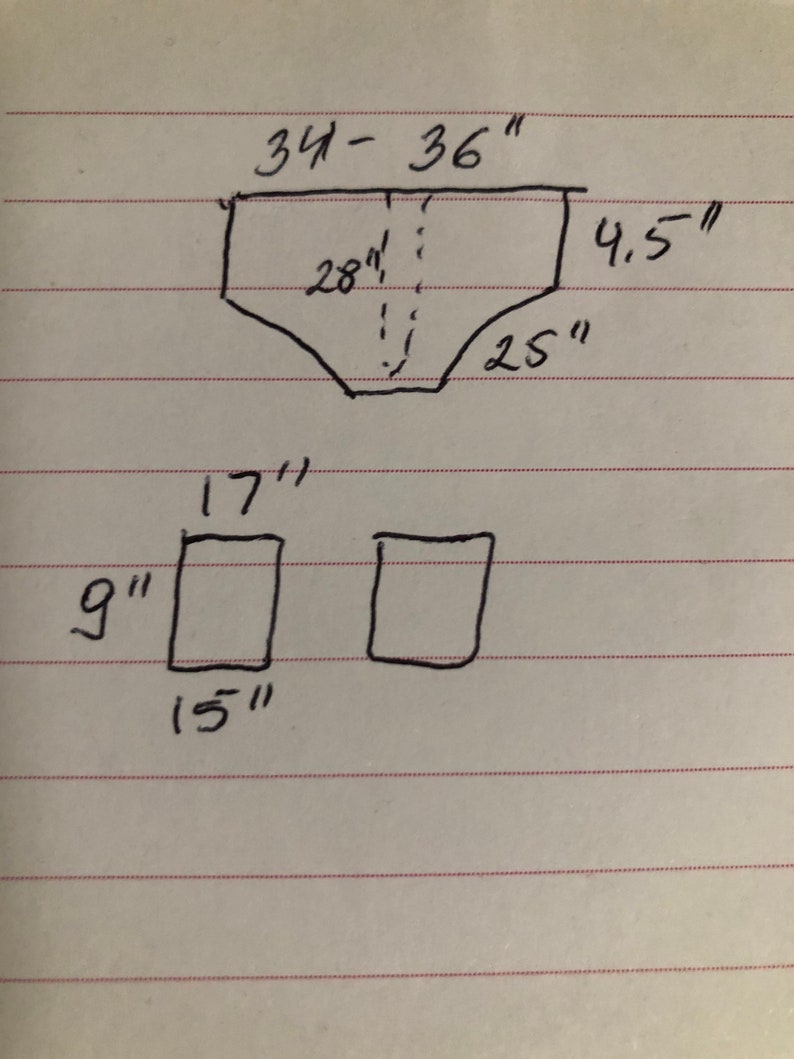 34 - 36"
28"
4.5"
25"
17"
9"
15"